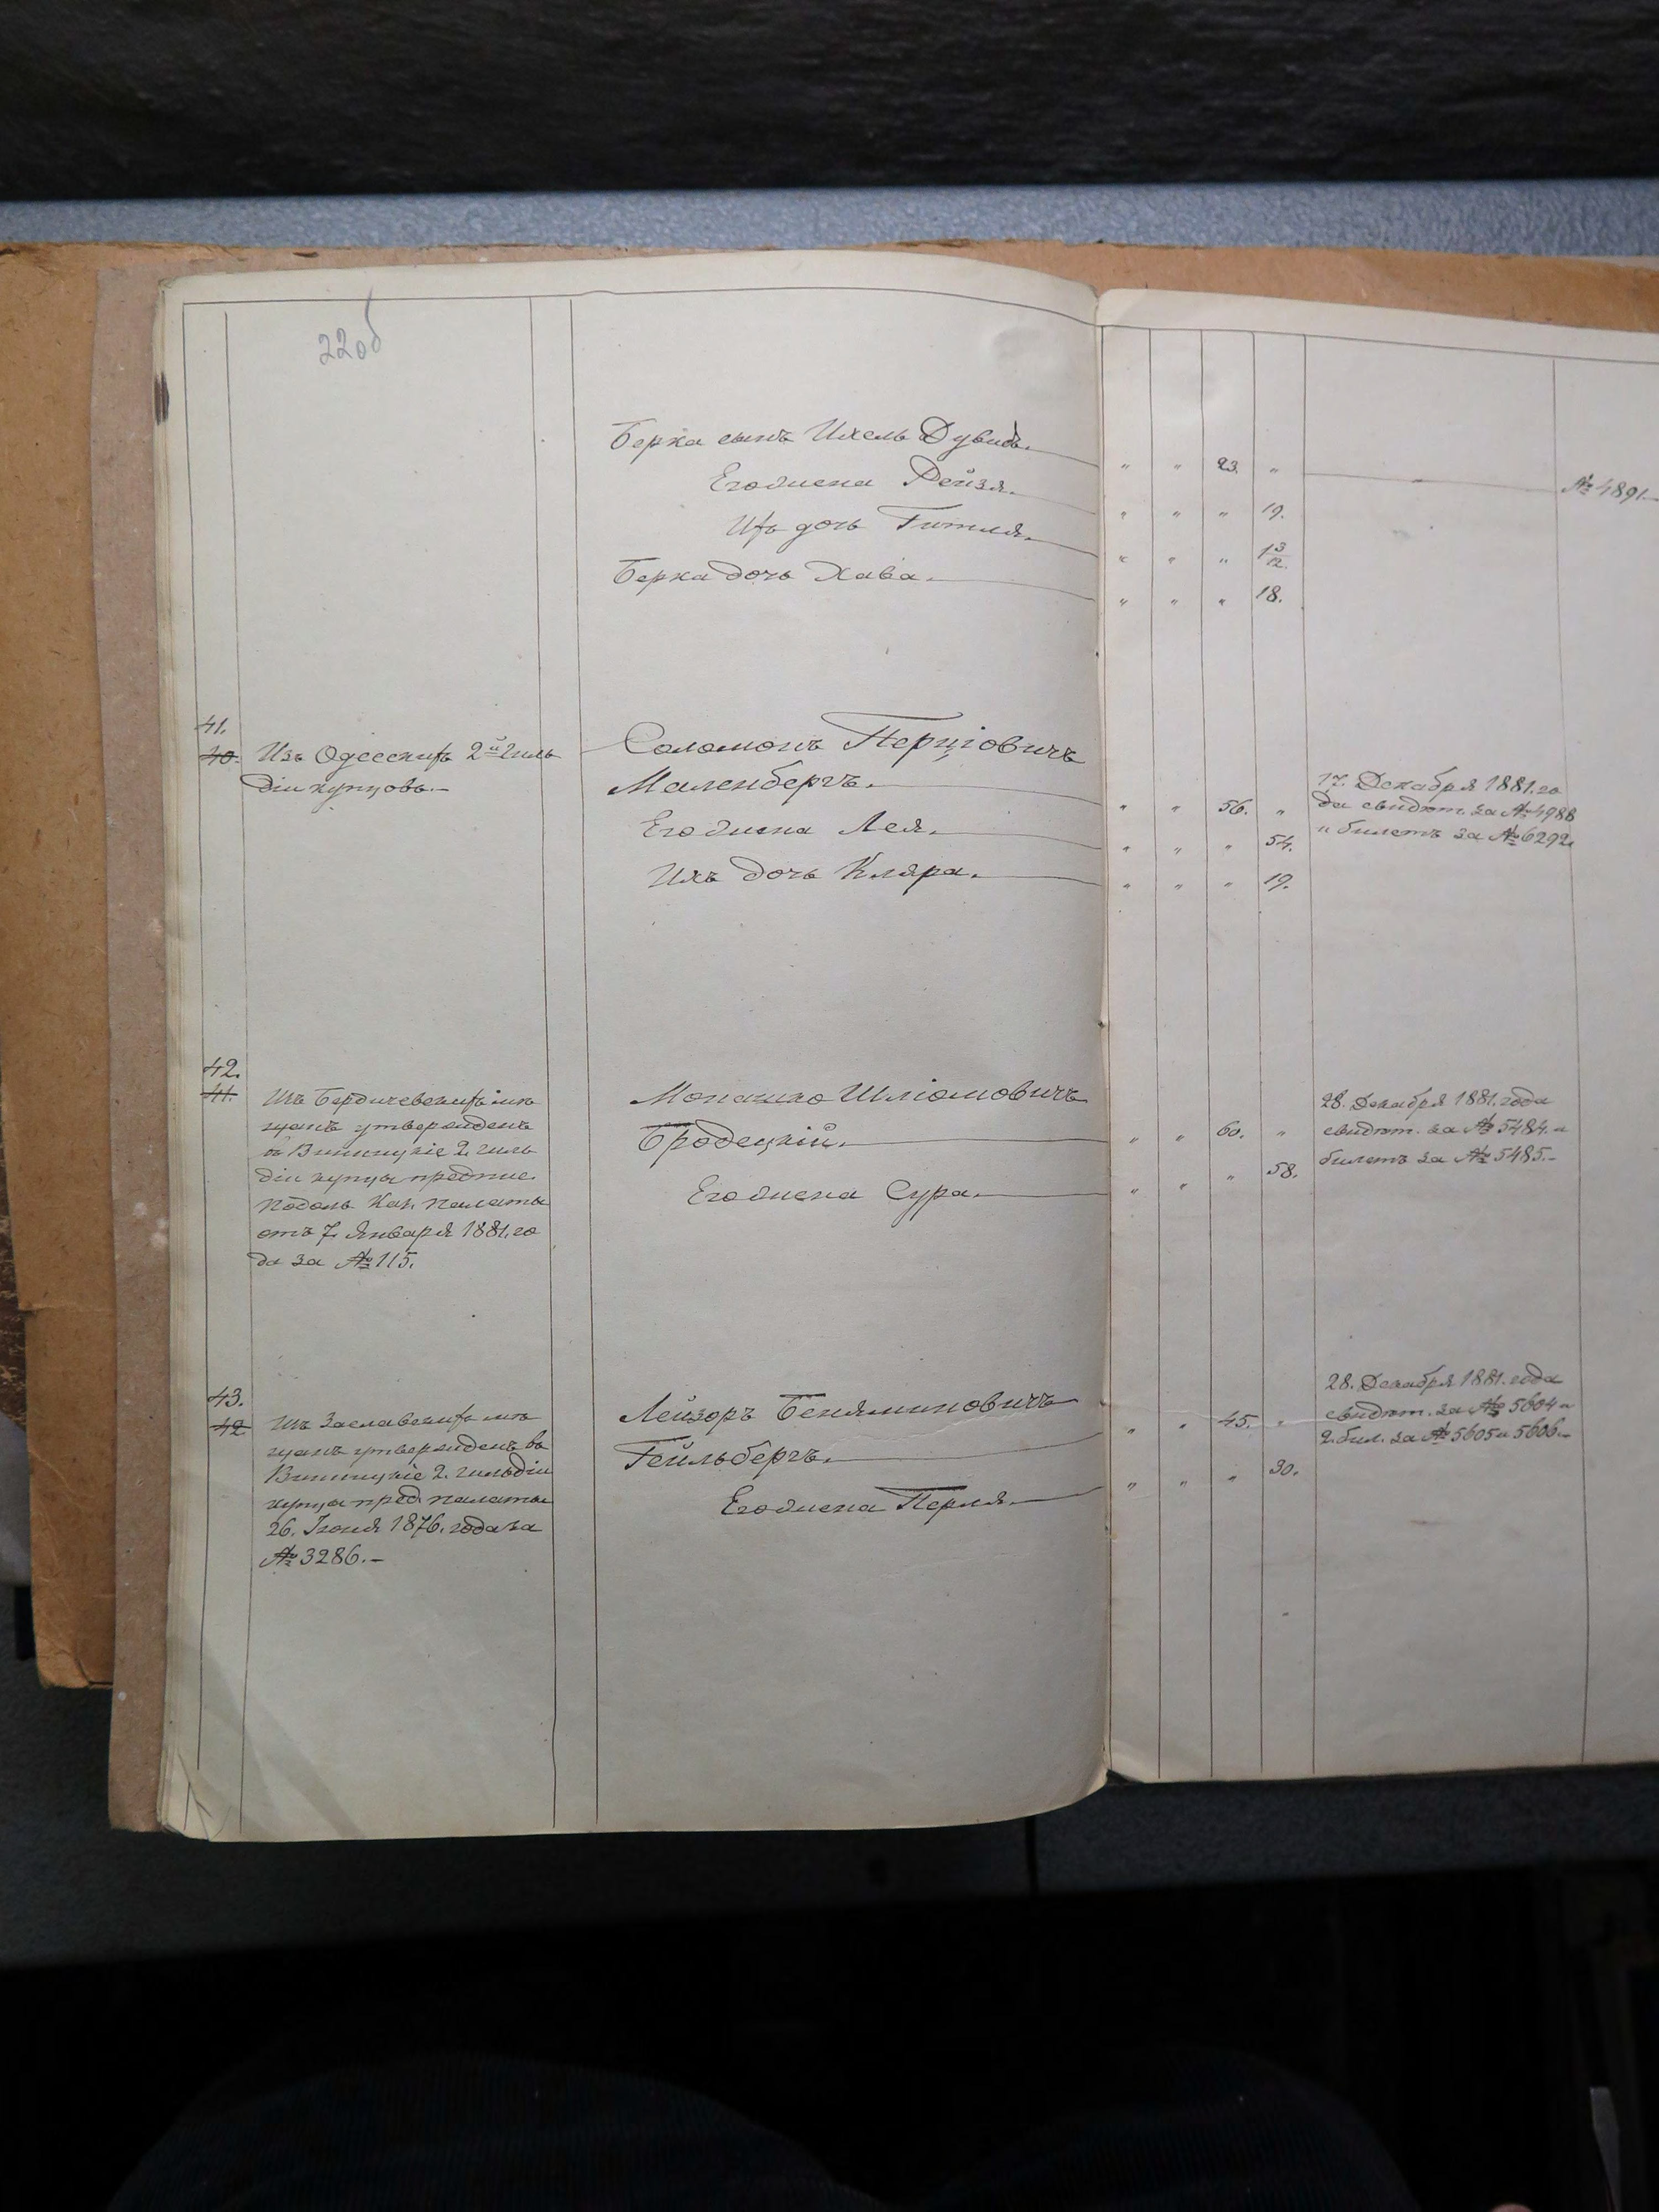 22об
Берка сынъ Ихель Дувидъ. " " 23. "
Его жена Рейзя. " " " 19.
№ 4891.
Ихъ дочь Гитля. " " " 1 3/12.
Берка дочь Хава. " " " 18.
41.
40. Изъ Одесскихъ 2й гиль
діи купцовъ.
Соломонъ Перціовичъ
Маленбергъ. " " 56. "
Его жена Лея. " " " 54.
Ихъ дочь Кляра. " " " 19.
17. Декабря 1881. го
да свидѣт. за № 4988
и билетъ за № 6292
42.
41. Изъ Бердичевскихъ мѣ
щанъ утвержденъ
въ Винницкіе 2. гиль
діи купца предпис.
Подоль. Каз. Палаты
отъ 7. Января 1881. го
да за № 115.
Мошко Шліомовичъ
Бродецкій. " " 60. "
Его жена Сура. " " " 58.
28. Декабря 1881. года
свидѣт. за № 5484. и
билетъ за № 5485.
43.
42 Изъ Заславскихъ мѣ
щанъ утвержденъ въ
Винницкіе 2. гильдіи
купца пред. палаты
26. Іюня 1876. года за
№ 3286.
Лейзоръ Беняминовичъ
Гейльбергъ. " " 45. "
Его жена Перля. " " " 30.
28. Декабря 1881. года
свидѣт. за № 5604 и
2. бил. за № 5605 и 5606.